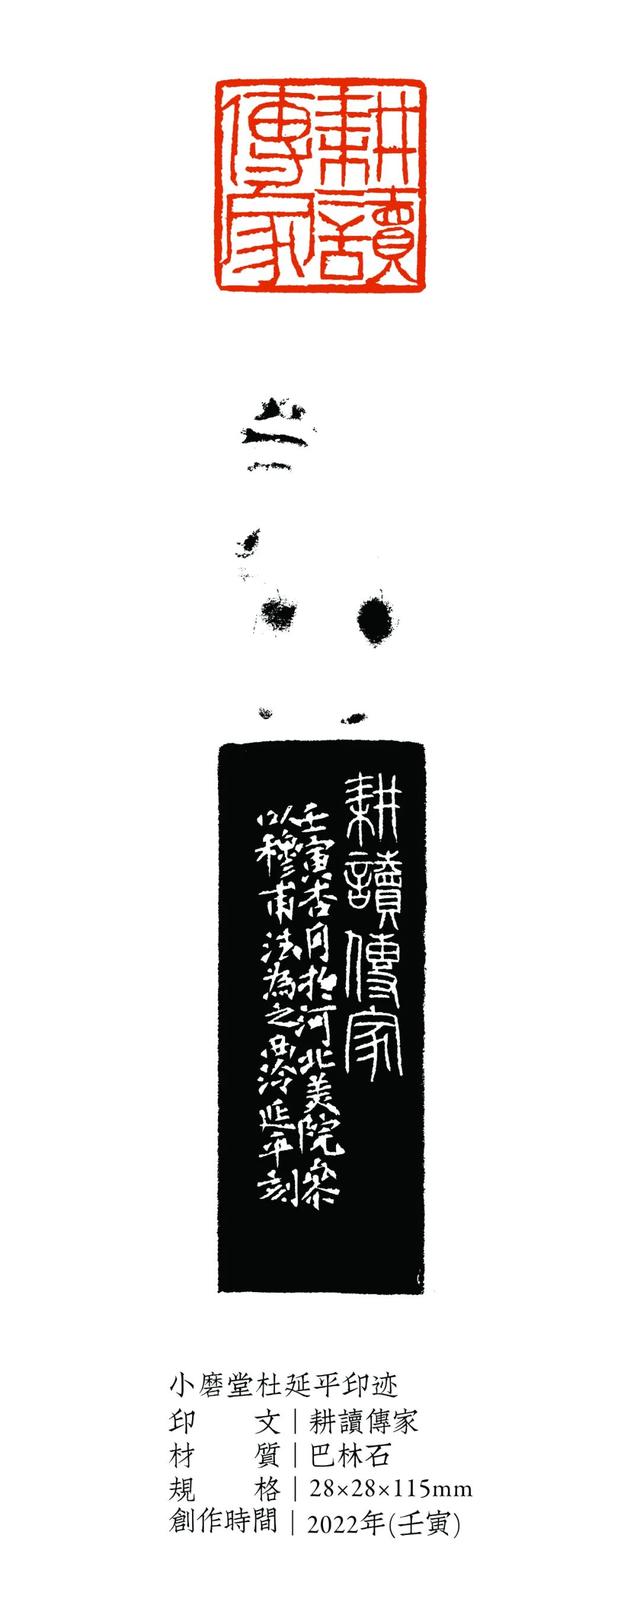 耕讀
傳家
耕讀傳家
壬寅杏月於河北美院
以穆甫法為之西泠延平刻
小磨堂杜延平印迹
印文｜耕讀傳家
材質｜巴林石
規格｜28×28×115mm
創作時間｜2022年(壬寅)